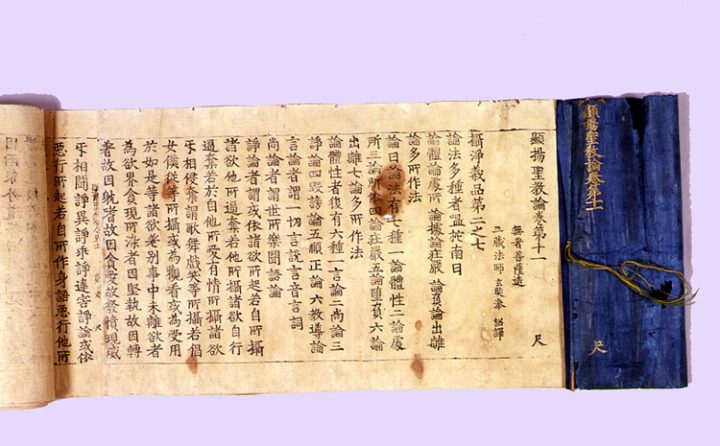 顯揚聖教論卷第十一
尺
顯揚聖教論卷第十一 尺
無著菩薩造
三藏法師玄奘奉 詔譯
攝淨義品第二之七
論法多種者嗢拕南曰
論體論處所 論據論莊嚴 論負論出離
論多所作法
論曰論法有七種一論體性二論處
所三論所依四論莊嚴五論墮負六論
出離七論多所作法
論體性者復有六種一言論二尚論三
諍論四毀謗論五順正論六教導論
言論者謂一切言說言音言詞
尚論者謂世所樂聞語論
諍論者謂或依諸欲所起若自所攝
諸欲他所逼奪若他所攝諸欲自行
逼奪若於自他所愛有情所攝諸欲
㸦相侵奪謂歌舞戲笑等所攝若倡
女僕從等所攝或為觀看或為受用
於如是等諸欲差別事中未離欲者
為欲界貪現所染者因堅執故因轉
著故因耽嗜故因貪愛故發憤現威
㸦相鬪諍異諍乖諍違害諍論或依
惡行所起若自所作身語惡行他所